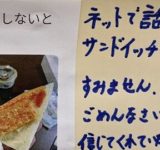 しないと
ネットで話
サンドイッチ
すみません、
ごめんなさい
信じてくれてい